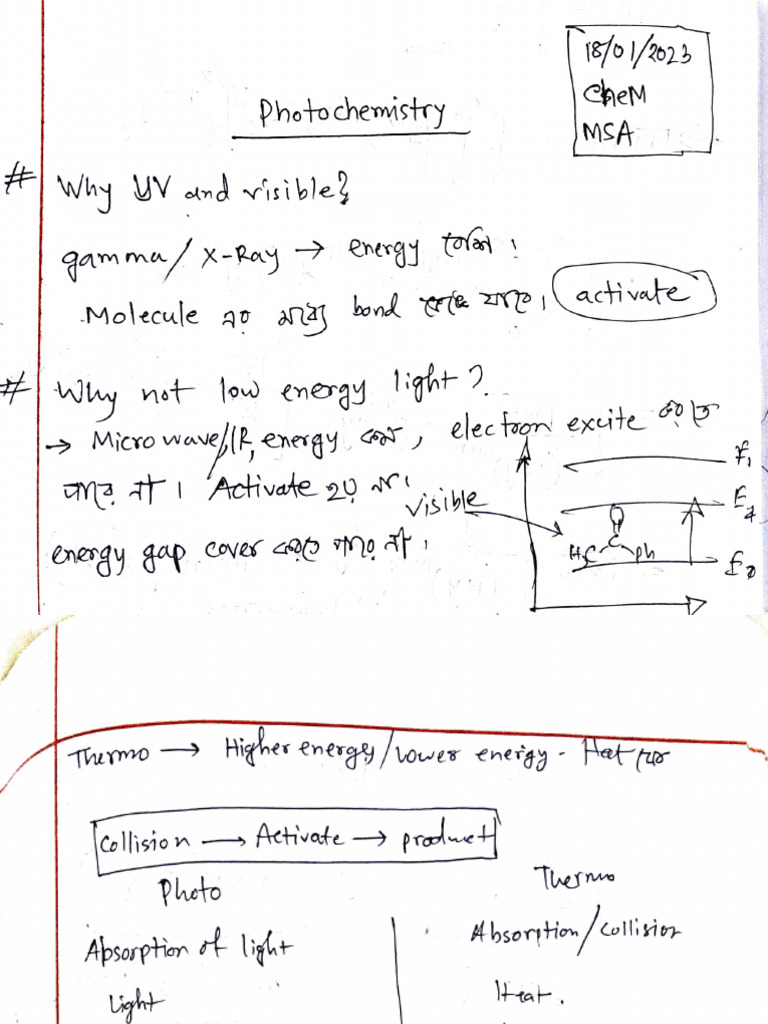 18/01/2023
CheM
MSA
Photochemistry
# Why UV and visible?
gamma/X-Ray → energy বেশি।
Molecule এর মধ্যে bond যাবে। activate
# Why not low energy light?
→ Microwave/IR, energy কম, electron excite করতে
পারে না। Activate হয় না।
visible
energy gap cover করতে পারে না।
E₁
H₃C C Ph
E₀
Thermo → Higher energy/Lower energy - Heat
Collision → Activate → product
Photo Thermo
Absorption of light Absorption/collision
Light Heat.